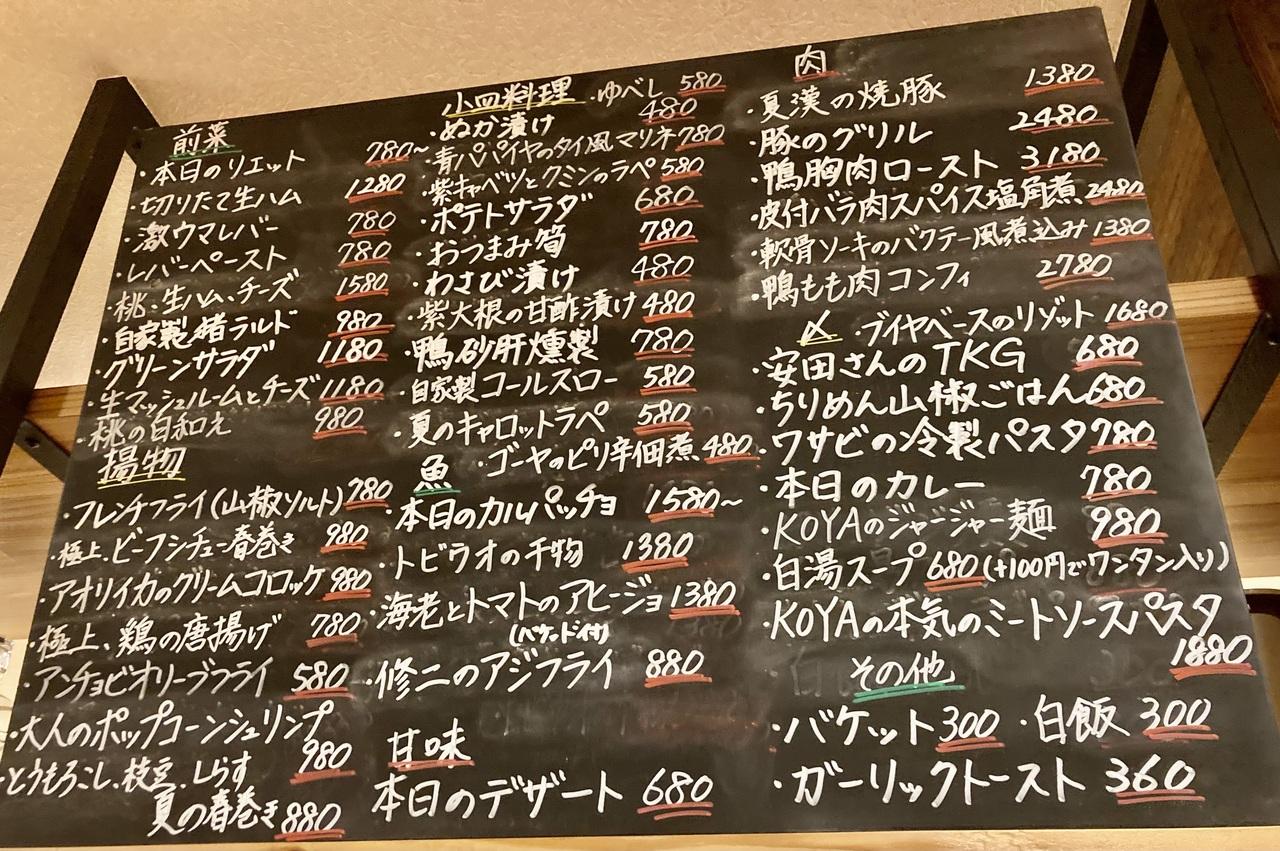 前菜
・本日のリエット 780~
・切りたて生ハム 1280
・激ウマレバー 780
・レバーペースト 780
・桃、生ハム、チーズ 1580
・自家製猪ラルド 980
・グリーンサラダ 1180
・生マッシュルームとチーズ 1180
・桃の白和え 980
揚物
・フレンチフライ(山椒ソルト) 780
・極上、ビーフシチュー春巻き 980
・アオリイカのクリームコロッケ 980
・極上、鶏の唐揚げ 780
・アンチョビオリーブフライ 580
・大人のポップコーンシュリンプ
980
・とうもろこし、枝豆、しらす
夏の春巻き 880
小皿料理
・ゆべし 580
・ぬか漬け 480
・青パパイヤのタイ風マリネ 780
・紫キャベツとクミンのラペ 580
・ポテトサラダ 680
・おつまみ筍 780
・わさび漬け 480
・紫大根の甘酢漬け 480
・鴨砂肝燻製 780
・自家製コールスロー 580
・夏のキャロットラペ 580
・ゴーヤのピリ辛佃煮 480
魚
・本日のカルパッチョ 1580~
・トビウオの干物 1380
・海老とトマトのアヒージョ 1380
(バケット付)
・修二のアジフライ 880
甘味
本日のデザート 680
肉
・夏漢の焼豚 1380
・豚のグリル 2480
・鴨胸肉ロースト 3180
・皮付バラ肉スパイス塩角煮 2480
・軟骨ソーキのバクテー風煮込み 1380
・鴨もも肉コンフィ 2780
〆
ブイヤベースのリゾット 1680
・安田さんのTKG 680
・ちりめん山椒ごはん 680
・ワサビの冷製パスタ 780
・本日のカレー 780
・KOYAのジャージャー麺 980
・白湯スープ 680 (+100円でワンタン入り)
・KOYAの本気のミートソースパスタ
1880
その他
・バケット 300 ・白飯 300
・ガーリックトースト 360